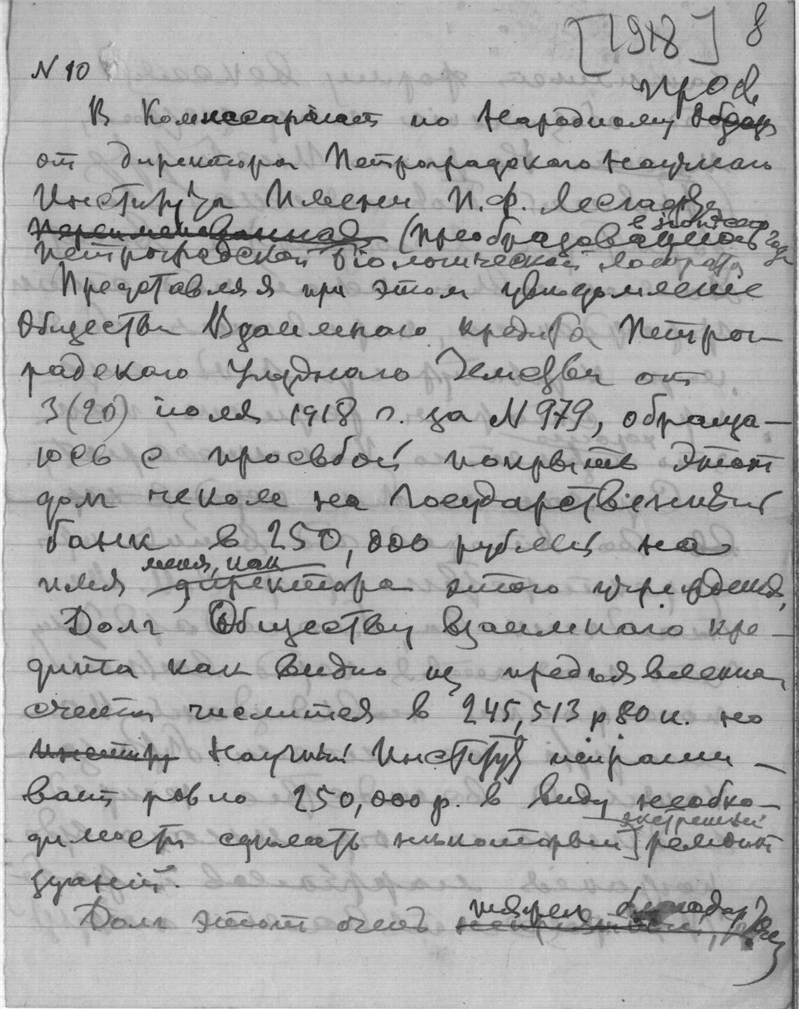 [1918] 8
N 10
проф.
В Комиссариат по Народному Образ
от директора Петроградского Научного
Института Имени П. Ф. Лесгафта
Переименованная (преобразована
Петроградской биологической лаборат
Представляя при этом уведомление
Общества Взаимного кредита Петрог
радского Уездного Земства от
3 (20) июля 1918 г. за N 979, обраща-
юсь с просьбой покрыть этот
долг чеком на Государственный
банк в 250,000 рублей на
меня, как
имя директора этого учреждения,
Долг Обществу взаимного кре-
дита как видно из предъявленна
счета числится в 245,513 р 80 к. но
Институ Научный Институт испраши-
вает ровно 250,000 р. в виду необхо-
экстренный
димости сделать некоторый ремонт
зданий.
тяжел
Долг этот очень